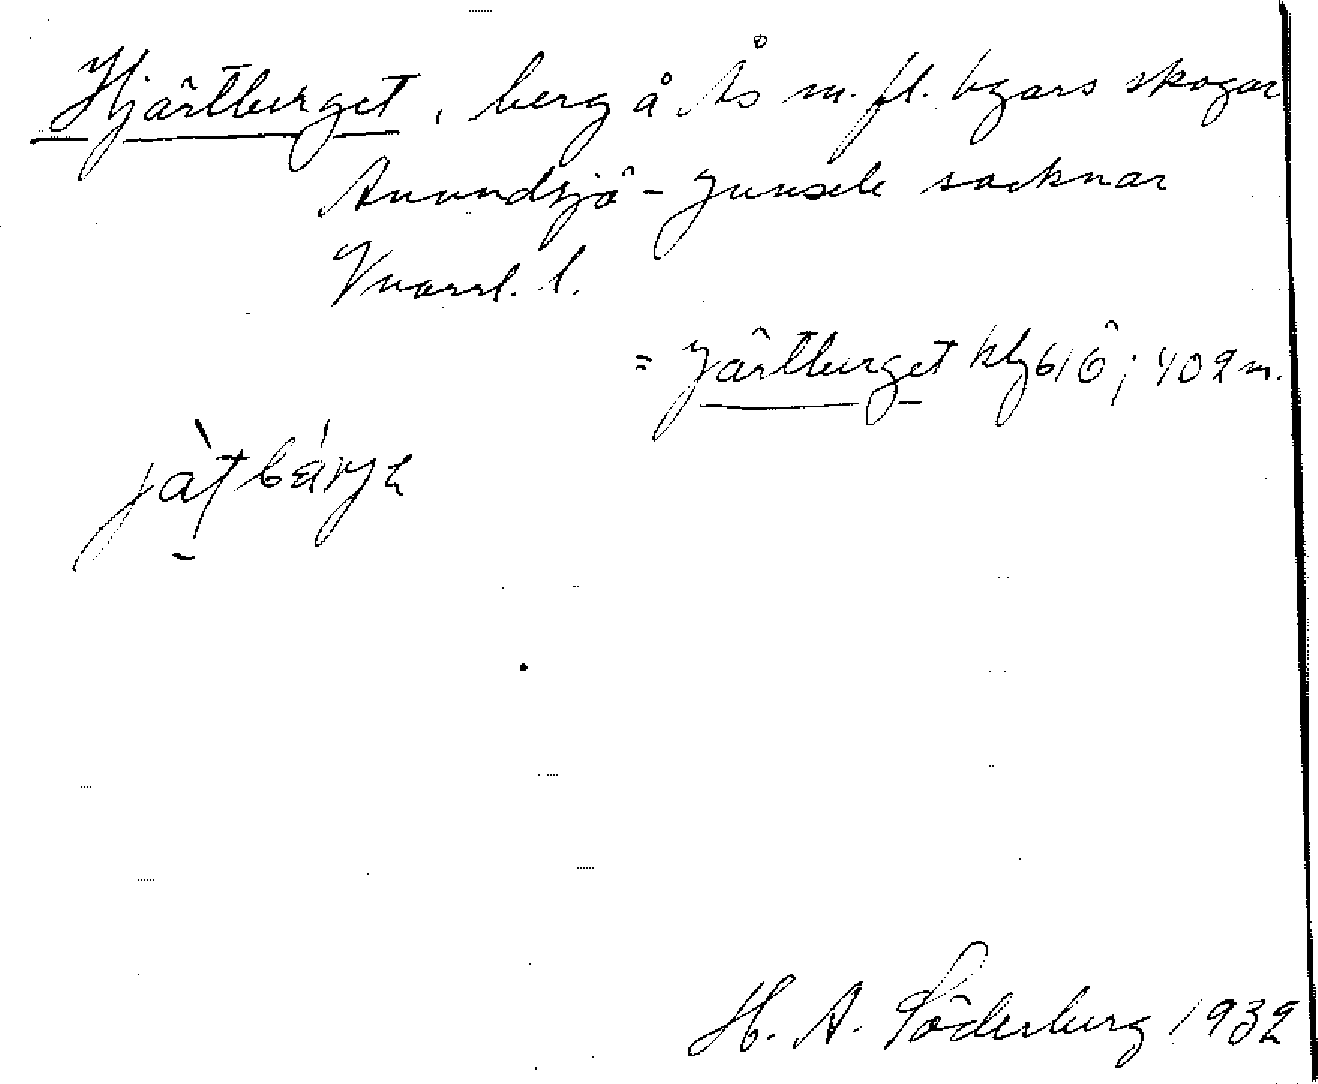 Hjärtberget, berg å Ås m. fl. byars skogar
Anundsjö - Junsele socknar
Vnorrl. l.
= Järtberget kbl 61ö; 402 m.
H. A. Söderberg 1932